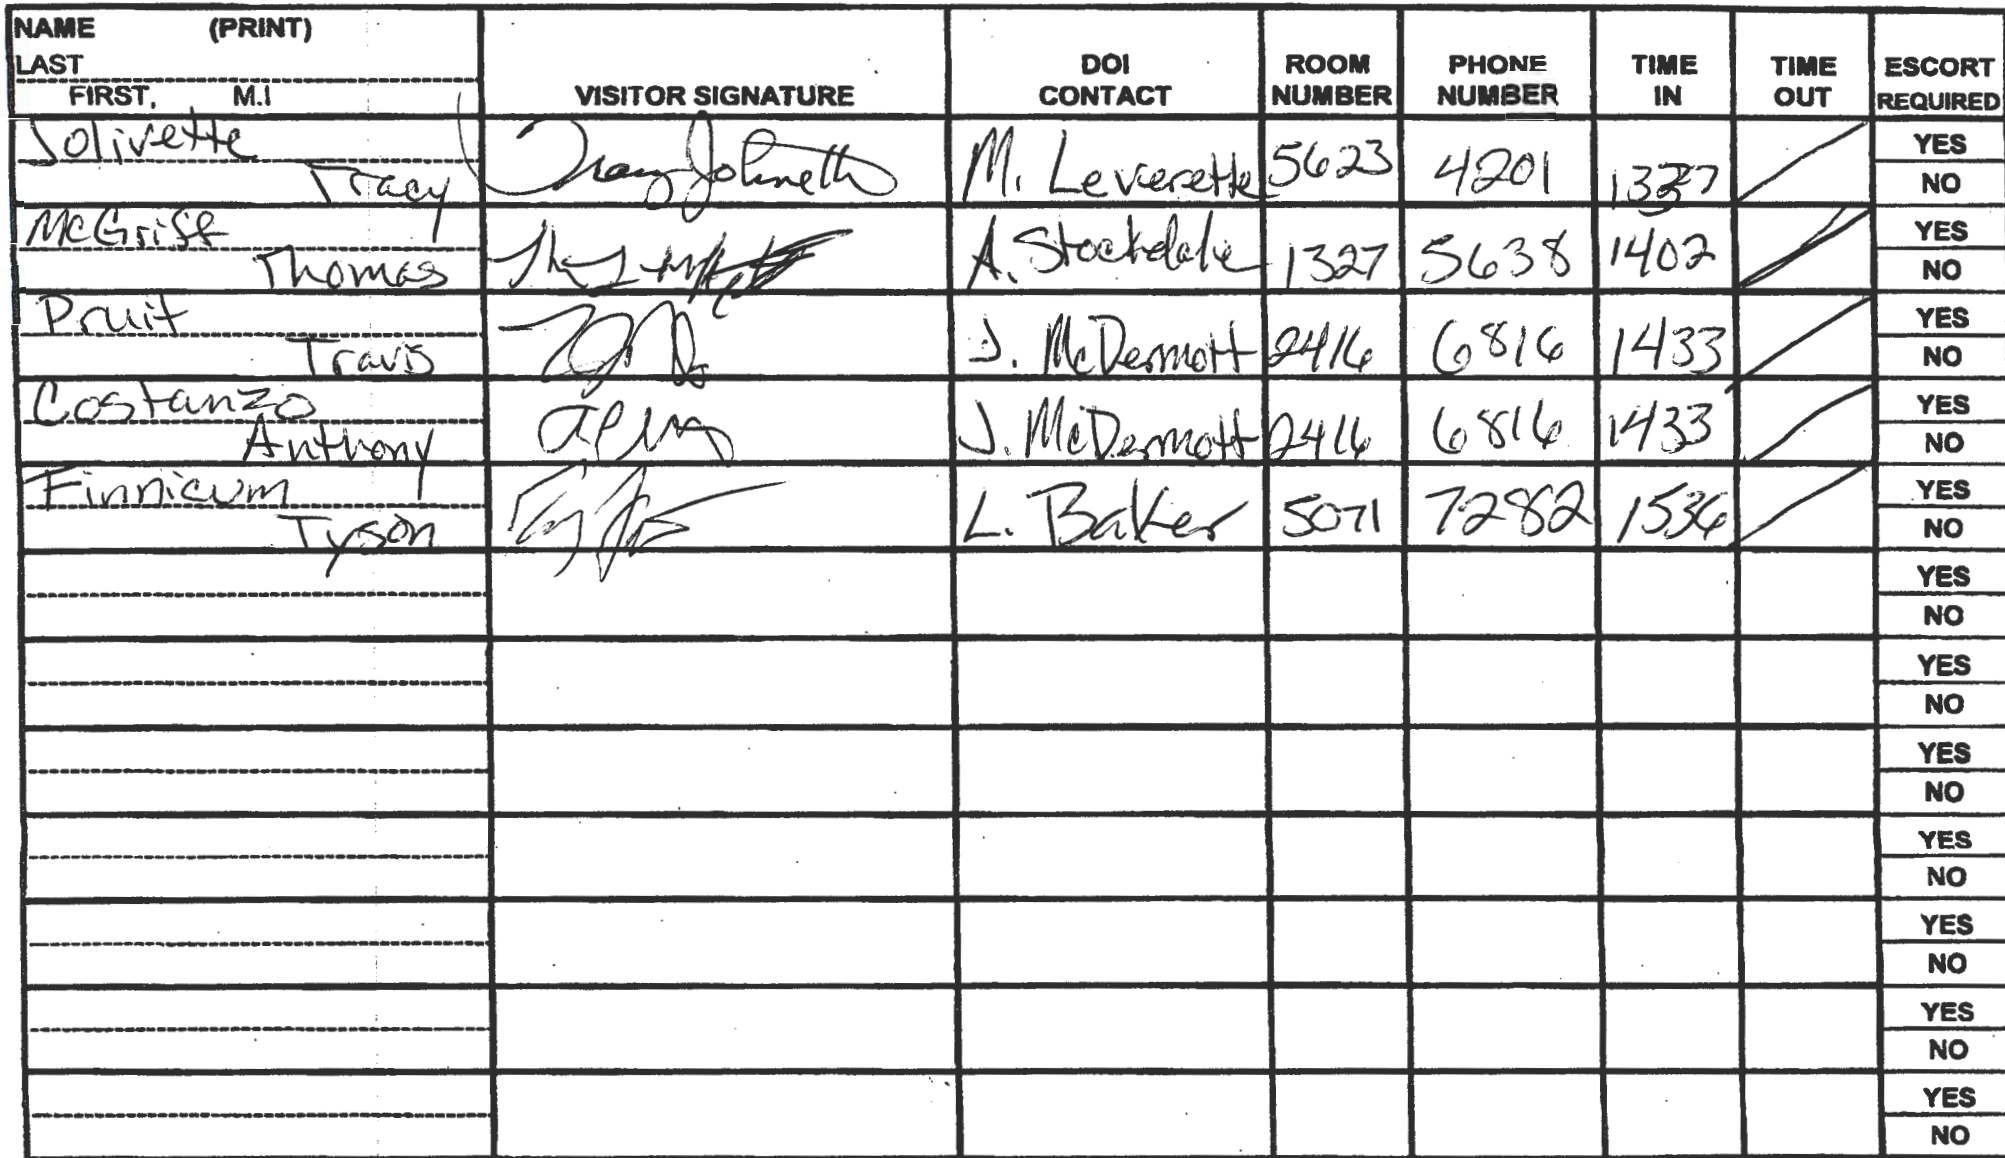 NAME (PRINT)
LAST
FIRST, M.I
VISITOR SIGNATURE
DOI CONTACT
ROOM NUMBER
PHONE NUMBER
TIME IN
TIME OUT
ESCORT REQUIRED
Jolivette Tracy M. Leverette 5623 4201 YES NO
McGriff Thomas A. Stockdale 1327 5638 1402 YES NO
Pruit Travis J. McDermott 2416 6816 1433 YES NO
Costanzo Anthony J. McDermott 2416 6816 1433 YES NO
Finnicum Tyson L. Baker 5071 7282 1536 YES NO
YES NO
YES NO
YES NO
YES NO
YES NO
YES NO
YES NO